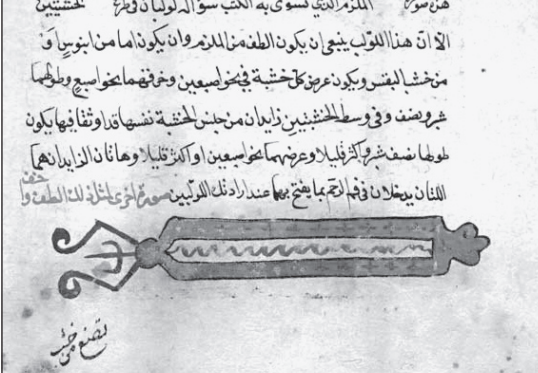 هذه صورة الملزم الذي تسوى به الكتب سواء له لولبان في طرفي الخشبتين
الا ان هذا اللولب ينبغي ان يكون الطف من الملزم وان يكون اما من ابنوس او
من خشب البقس ويكون عرض كل خشبة في نحو اصبعين وحرفهما نحو اصبع وطولهما
شبر ونصف وفي وسط الخشبتين زايدان من جنس الخشبة نفسها قد اوثقا فيها يكون
طولهما نصف شبر او اكثر قليلا وعرضهما نحو اصبعين او اكثر قليلا وهاتان الزايدان هما
اللتان يدخلان في فم الرحم بما يفتح بهما عند ارادتك اللولبين صورة اخرى لمثل ذلك الطف واخف
تصنع من خشب